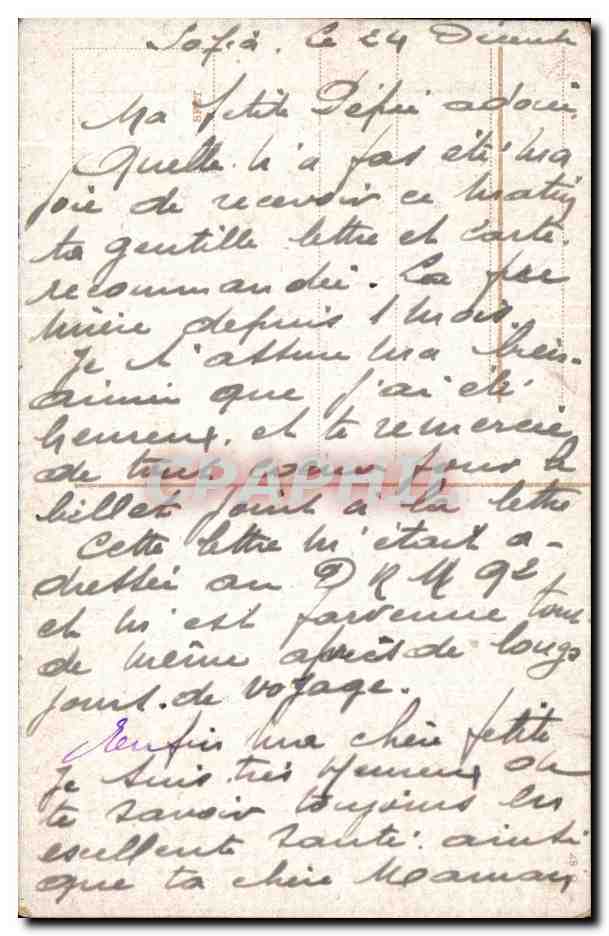 Sofia. Ce 24 Décemb
Ma petite adorée
Quelle n'a pas été ma
joie de recevoir ce matin
ta gentille lettre et carte
recommandée. La pre
mière depuis 1 mois.
Je t'assure ma bien-
aimée que j'ai été
heureux. et te remercie
de tout coeur pour le
billet joint à la lettre
Cette lettre m'était a-
dressée au D R M 92
et m'est parvenue tout
de même après de longs
jours. de voyage.
Enfin ma chère petite
je suis très heureux de
te savoir toujours en
excellente santé. ainsi
que ta chère Maman
CPAPHIL